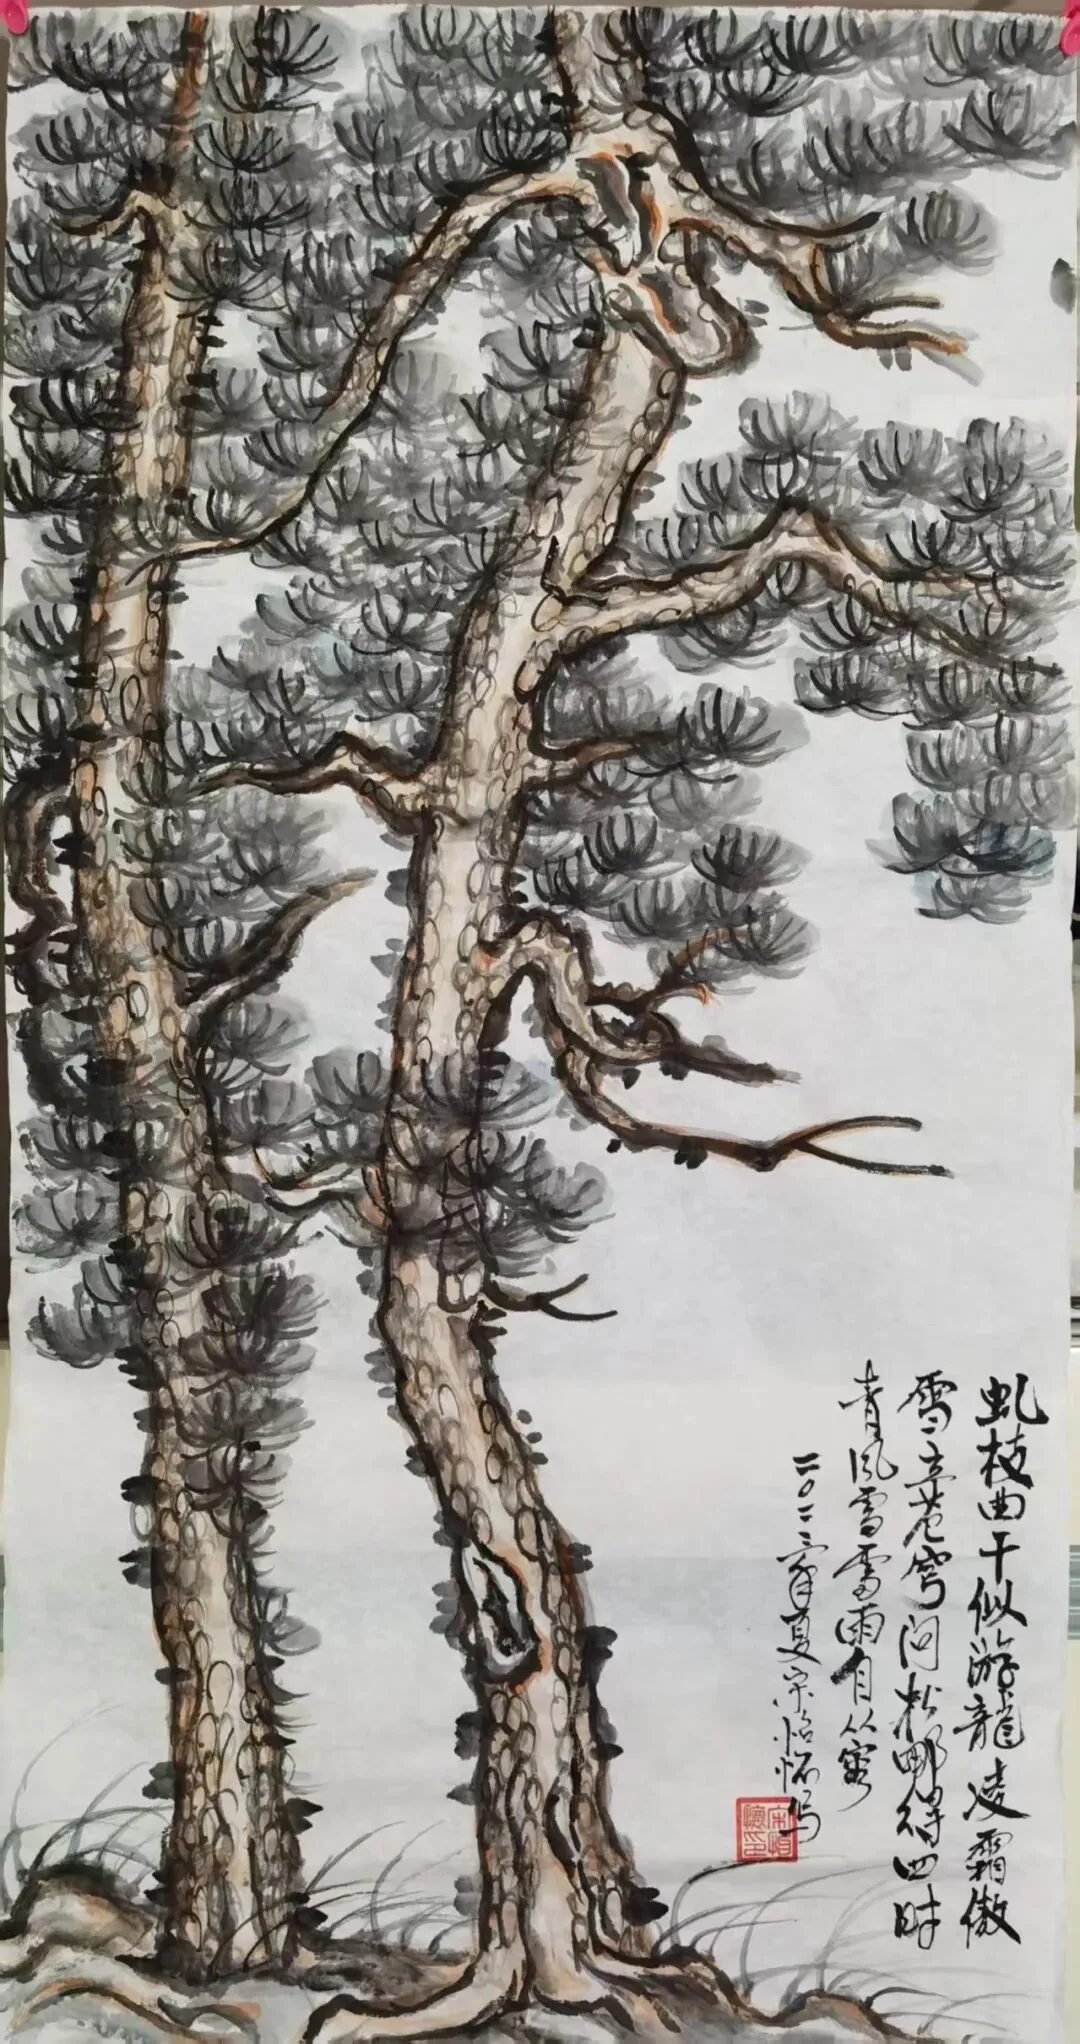 虬枝曲干似游龍凌霜傲
雪立苍穹问松哪得四时
青风雪雷雨自从容
二〇二二家夏宋怡怀写
宋怡
懷印